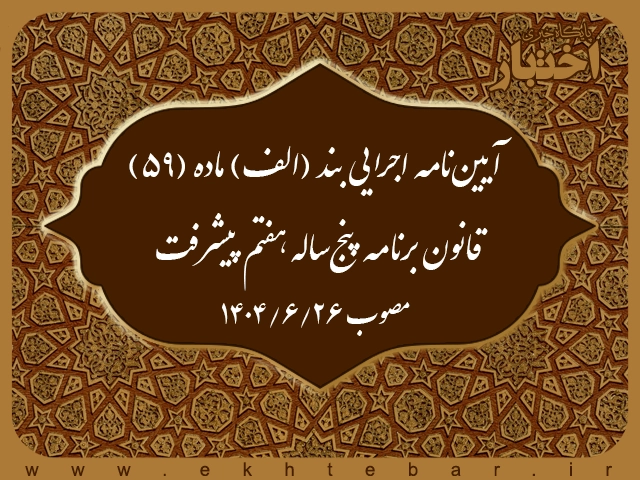 پایگاه خبری
اختبار
آیین‌نامه اجرایی بند (الف) ماده (۵۹)
قانون برنامه پنج‌ساله هفتم پیشرفت
مصوب ۱۴۰۴/۶/۲۶
www.ekhtebar.ir